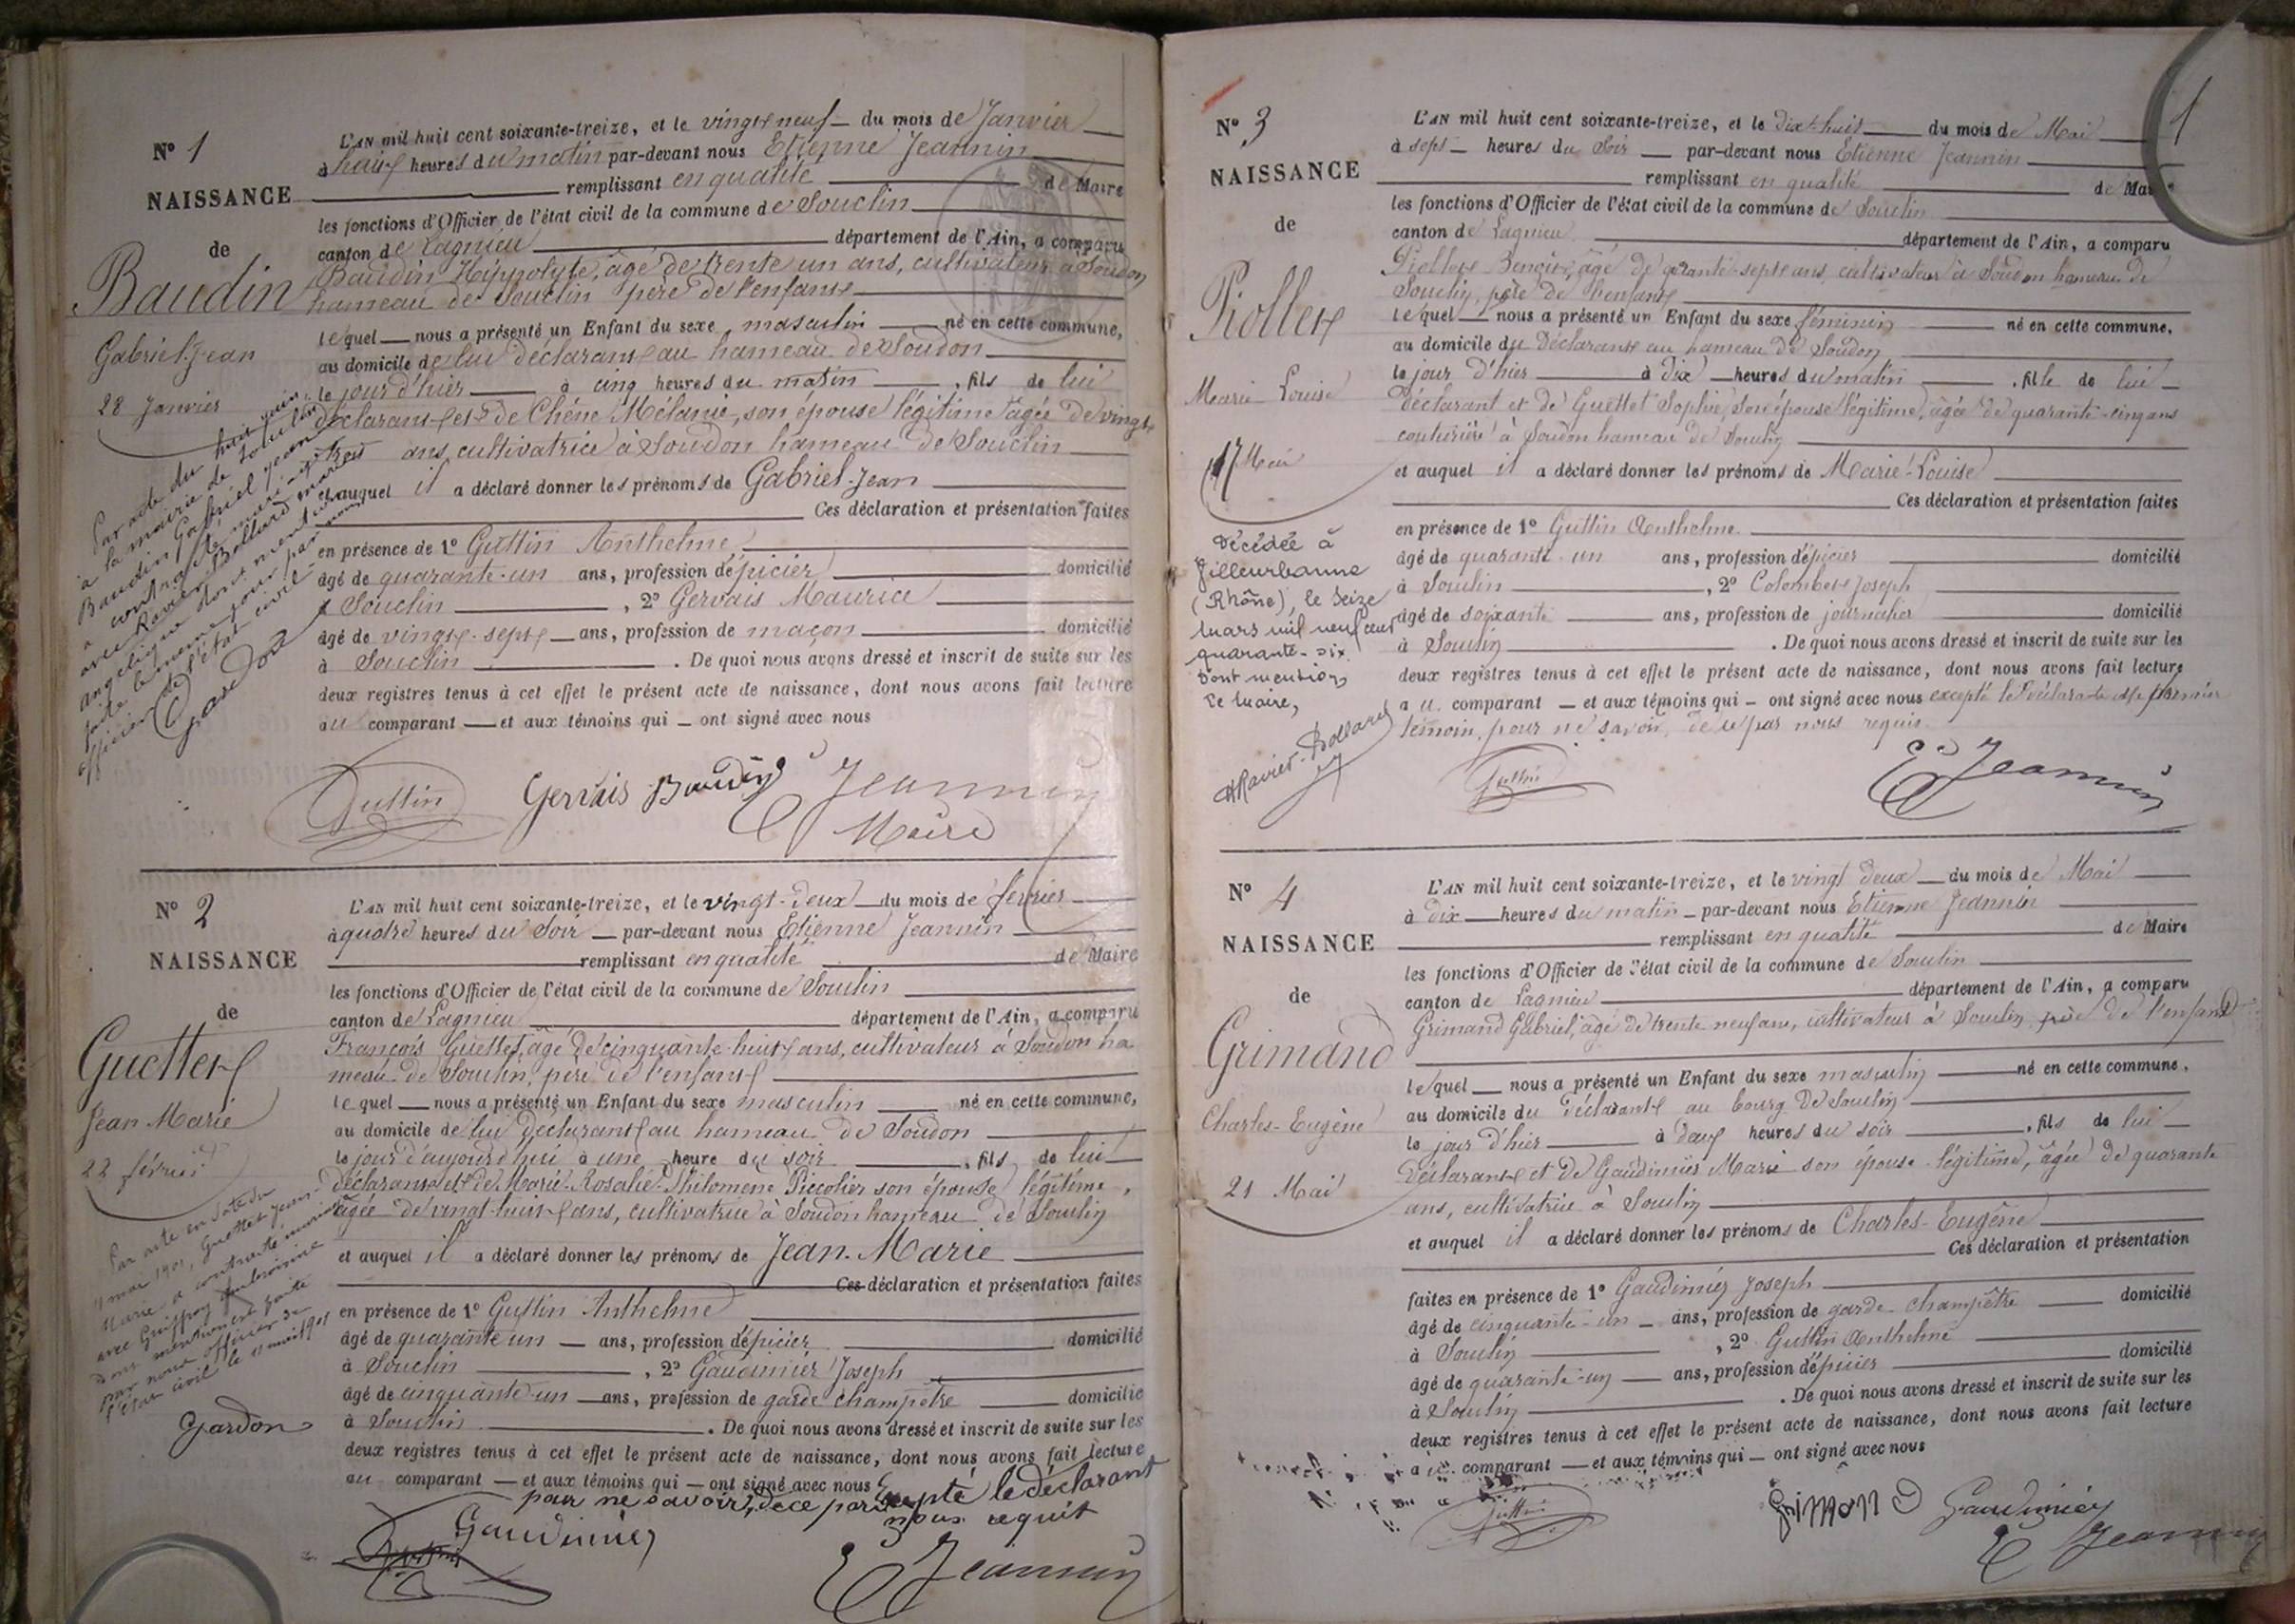 Nº 1
NAISSANCE
de
Baudin
Gabriel-Jean
28 Janvier
L'AN mil huit cent soixante-treize, et le vingt neuf du mois de Janvier
à huit heures du matin par-devant nous Etienne Jeannin
remplissant en qualité de Maire
les fonctions d'Officier de l'état civil de la commune de Souclin
canton de Lagnieu département de l'Ain, a comparu
Baudin Hippolyte, âgé de trente un ans, cultivateur à Soudon
hameau de Souclin père de l'enfant
lequel nous a présenté un Enfant du sexe masculin né en cette commune,
au domicile de lui déclarant au hameau de Soudon
le jour d'hier à cinq heures du matin, fils de lui
déclarant et de Chêne Mélanie, son épouse légitime âgée de vingt
trois ans, cultivatrice à Soudon hameau de Souclin
et auquel il a déclaré donner les prénoms de Gabriel-Jean
Ces déclaration et présentation faites
en présence de 1º Guttin Anthelme
âgé de quarante-un ans, profession d'épicier domicilié
à Souclin, 2º Gervais Maurice
âgé de vingt-sept ans, profession de maçon domicilié
à Souclin. De quoi nous avons dressé et inscrit de suite sur les
deux registres tenus à cet effet le présent acte de naissance, dont nous avons fait lecture
au comparant et aux témoins qui ont signé avec nous
Par acte du huit juin
à la mairie de
Baudin Gabriel Jean
a contracté mariage
avec Ravier Bollard
angélique dont mention
faite par nous
officier de l'état civil
Guttin Gervais Baudin E Jeannin
Maire
Nº 2
NAISSANCE
de
Guettet
Jean Marie
22 février
L'AN mil huit cent soixante-treize, et le vingt-deux du mois de février
à quatre heures du soir par-devant nous Etienne Jeannin
remplissant en qualité de Maire
les fonctions d'Officier de l'état civil de la commune de Souclin
canton de Lagnieu département de l'Ain, a comparu
François Guettet, âgé de cinquante-huit ans, cultivateur à Soudon ha
meau de Souclin, père de l'enfant
lequel nous a présenté un Enfant du sexe masculin né en cette commune,
au domicile de lui déclarant au hameau de Soudon
le jour d'aujourd'hui à une heure du soir, fils de lui
déclarant et de Marie-Rosalie-Philomène Piccolier son épouse légitime,
âgée de vingt-huit ans, cultivatrice à Soudon hameau de Souclin
et auquel il a déclaré donner les prénoms de Jean-Marie
Ces déclaration et présentation faites
en présence de 1º Guttin Anthelme
âgé de quarante un ans, profession d'épicier domicilié
à Souclin, 2º Gaudimier Joseph
âgé de cinquante-un ans, profession de garde champêtre domicilié
à Souclin. De quoi nous avons dressé et inscrit de suite sur les
deux registres tenus à cet effet le présent acte de naissance, dont nous avons fait lecture
au comparant et aux témoins qui ont signé avec nous Excepté le déclarant
pour ne savoir, de ce par nous requit
Par acte en date du
11 mai 1901, Guettet Jean-
Marie a contracté mariage
avec Guiffray Ambroisine
dont mention est faite
par nous officier de
l'état civil le 11 mai 1901
Gardon
Gaudimier
E Jeannin
Nº 3
NAISSANCE
de
Piollet
Marie Louise
17 Mai
L'AN mil huit cent soixante-treize, et le dix-huit du mois de Mai
1
à sept heures du soir par-devant nous Etienne Jeannin
remplissant en qualité de Maire
les fonctions d'Officier de l'état civil de la commune de Souclin
canton de Lagnieu département de l'Ain, a comparu
Piollet Benoit, âgé de quarante-sept ans, cultivateur à Soudon hameau de
Souclin, père de l'enfant
lequel nous a présenté un Enfant du sexe féminin né en cette commune,
au domicile du déclarant au hameau de Soudon
le jour d'hier à dix heures du matin, fille de lui
déclarant et de Guettet Sophie, son épouse légitime, âgée de quarante-cinq ans
couturière à Soudon hameau de Souclin
et auquel il a déclaré donner les prénoms de Marie-Louise
Ces déclaration et présentation faites
en présence de 1º Guttin Anthelme
âgé de quarante-un ans, profession d'épicier domicilié
à Souclin, 2º Colombet Joseph
âgé de soixante ans, profession de journalier domicilié
à Souclin. De quoi nous avons dressé et inscrit de suite sur les
deux registres tenus à cet effet le présent acte de naissance, dont nous avons fait lecture
au comparant et aux témoins qui ont signé avec nous excepté le déclarant
témoin, pour ne savoir, de ce par nous requis
Décédée à
Villeurbanne
(Rhône), le seize
mars mil neuf cent
quarante-six
Dont mention
Le maire,
Ravier-Bollard
Guttin E Jeannin
Nº 4
NAISSANCE
de
Grimand
Charles-Eugène
21 Mai
L'AN mil huit cent soixante-treize, et le vingt deux du mois de Mai
à dix heures du matin par-devant nous Etienne Jeannin
remplissant en qualité de Maire
les fonctions d'Officier de l'état civil de la commune de Souclin
canton de Lagnieu département de l'Ain, a comparu
Grimand Gabriel, âgé de trente neuf ans, cultivateur à Souclin père de l'enfant
lequel nous a présenté un Enfant du sexe masculin né en cette commune,
au domicile du déclarant au bourg de Souclin
le jour d'hier à deux heures du soir, fils de lui
déclarant et de Gaudimier Marie son épouse légitime, âgée de quarante
ans, cultivatrice à Souclin
et auquel il a déclaré donner les prénoms de Charles-Eugène
Ces déclaration et présentation
faites en présence de 1º Gaudimier Joseph
âgé de cinquante-un ans, profession de garde champêtre domicilié
à Souclin, 2º Guttin Anthelme
âgé de quarante-un ans, profession d'épicier domicilié
à Souclin. De quoi nous avons dressé et inscrit de suite sur les
deux registres tenus à cet effet le présent acte de naissance, dont nous avons fait lecture
au comparant et aux témoins qui ont signé avec nous
Guttin Grimand Gaudimier
E Jeannin